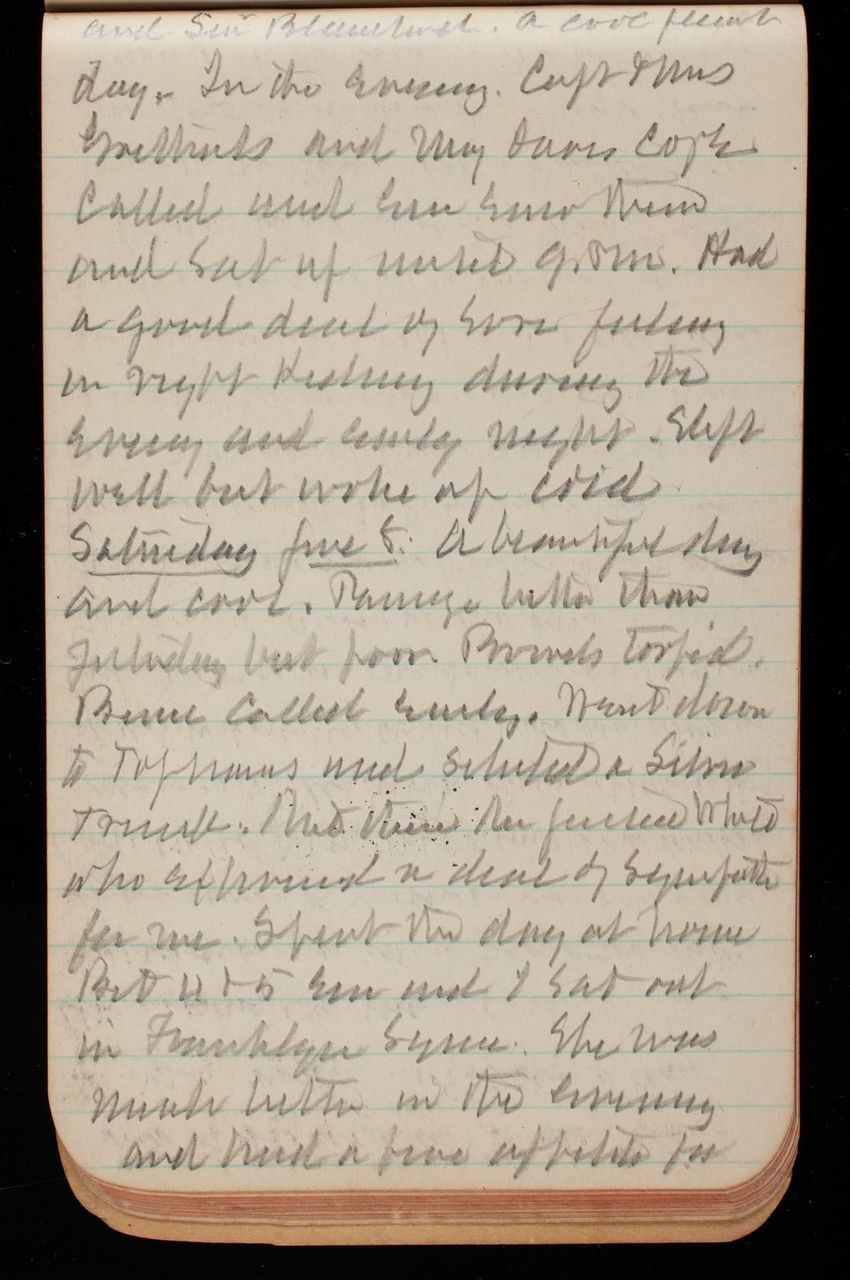 and Sen Blanchard. A cool pleasant
day. In the evening. Capt & Mrs
Goethals and Maj Davis Corps
Called and Em saw them
and Sat up until 9 P.M. Had
a good deal of sore feeling
in right Kidney during the
evening and early night. Slept
well but woke up cold
Saturday June 8. A beautiful day
and cool. Passage better than
yesterday but poor. Bowels torpid.
Bruce Called early. Went down
to Tophams and selected a Silver
Trunk. Met there White
who expressed a deal of sympathy
for me. Spent the day at home
Bet 4 & 5 Em and I Sat out
in Franklyn Square. She was
much better in the evening
and had a fine appetite for